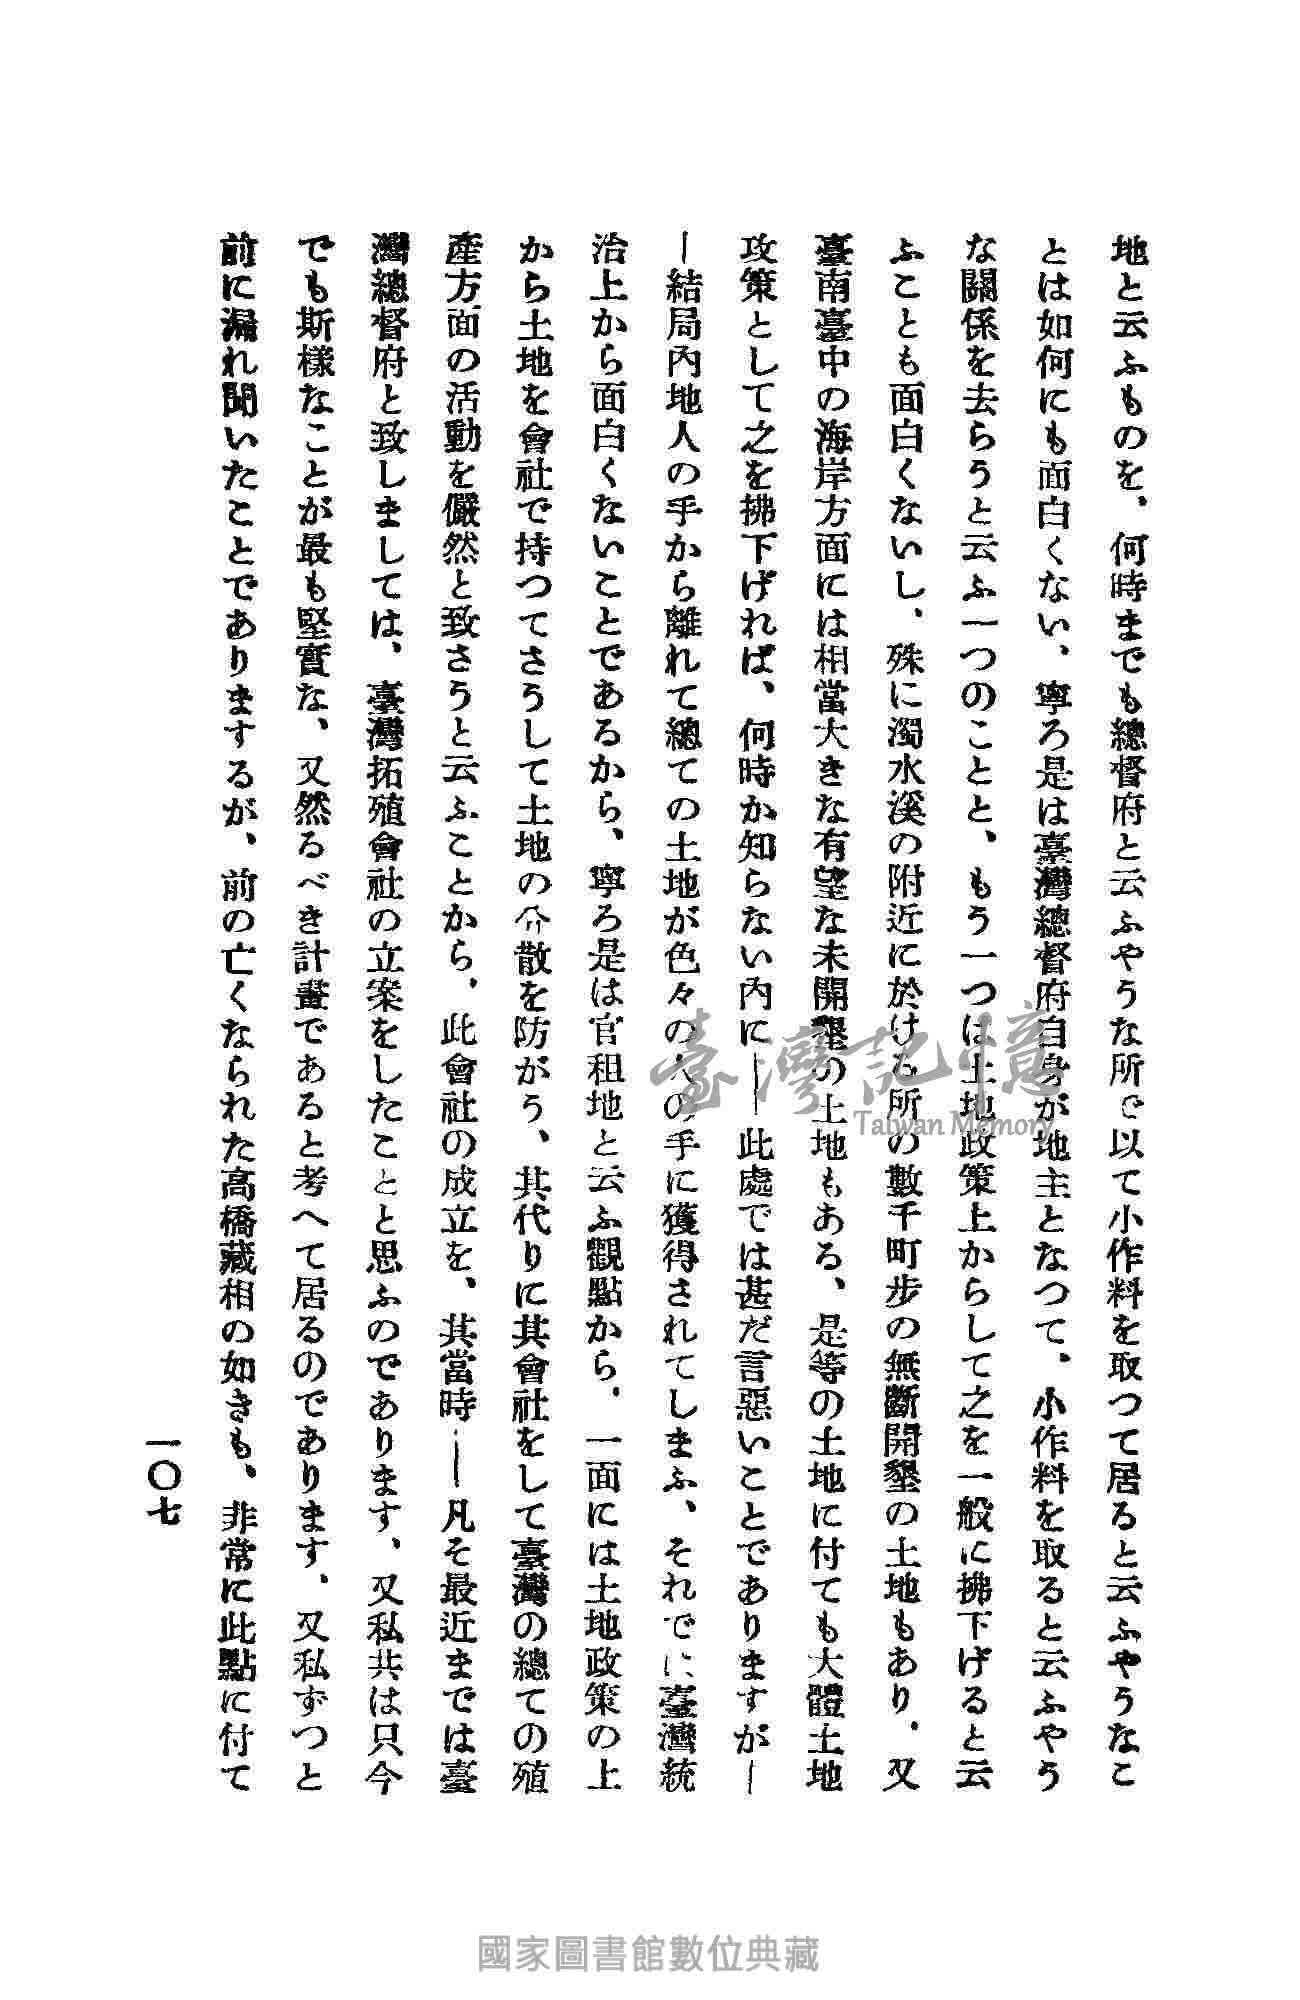 地と云ふものを、何時までも總督府と云ふやうな所で以て小作料を取つて居ると云ふやうなこ
とは如何にも面白くない、寧ろ是は臺灣總督府自身が地主となつて、小作料を取ると云ふやう
な關係を去らうと云ふ一つのことと、もう一つは土地政策上からして之を一般に拂下げると云
ふことも面白くないし、殊に濁水溪の附近に於ける所の數千町步の無斷開墾の土地もあり、又
臺南臺中の海岸方面には相當大きな有望な未開墾の土地もある、是等の土地に付ても大體土地
政策として之を拂下げれば、何時か知らない內に——此處では甚だ言惡いことでありますが—
—結局內地人の手から離れて總ての土地が色々の人の手に獲得されてしまふ、それでに臺灣統
治上から面白くないことであるから、寧ろ是は官租地と云ふ觀點から、一面には土地政策の上
から土地を會社で持つてさうして土地の分散を防がう、其代りに其會社をして臺灣の總ての殖
產方面の活動を儼然と致さうと云ふことから、此會社の成立を、其當時——凡そ最近までは臺
灣總督府と致しましては、臺灣拓殖會社の立案をしたことと思ふのであります、又私共は只今
でも斯樣なことが最も堅實な、又然るべき計畫であると考へて居るのであります、又私ずつと
前に漏れ聞いたことでありまするが、前の亡くなられた高橋藏相の如きも、非常に此點に付て
一〇七
臺灣記憶
Taiwan Memory
國家圖書館數位典藏